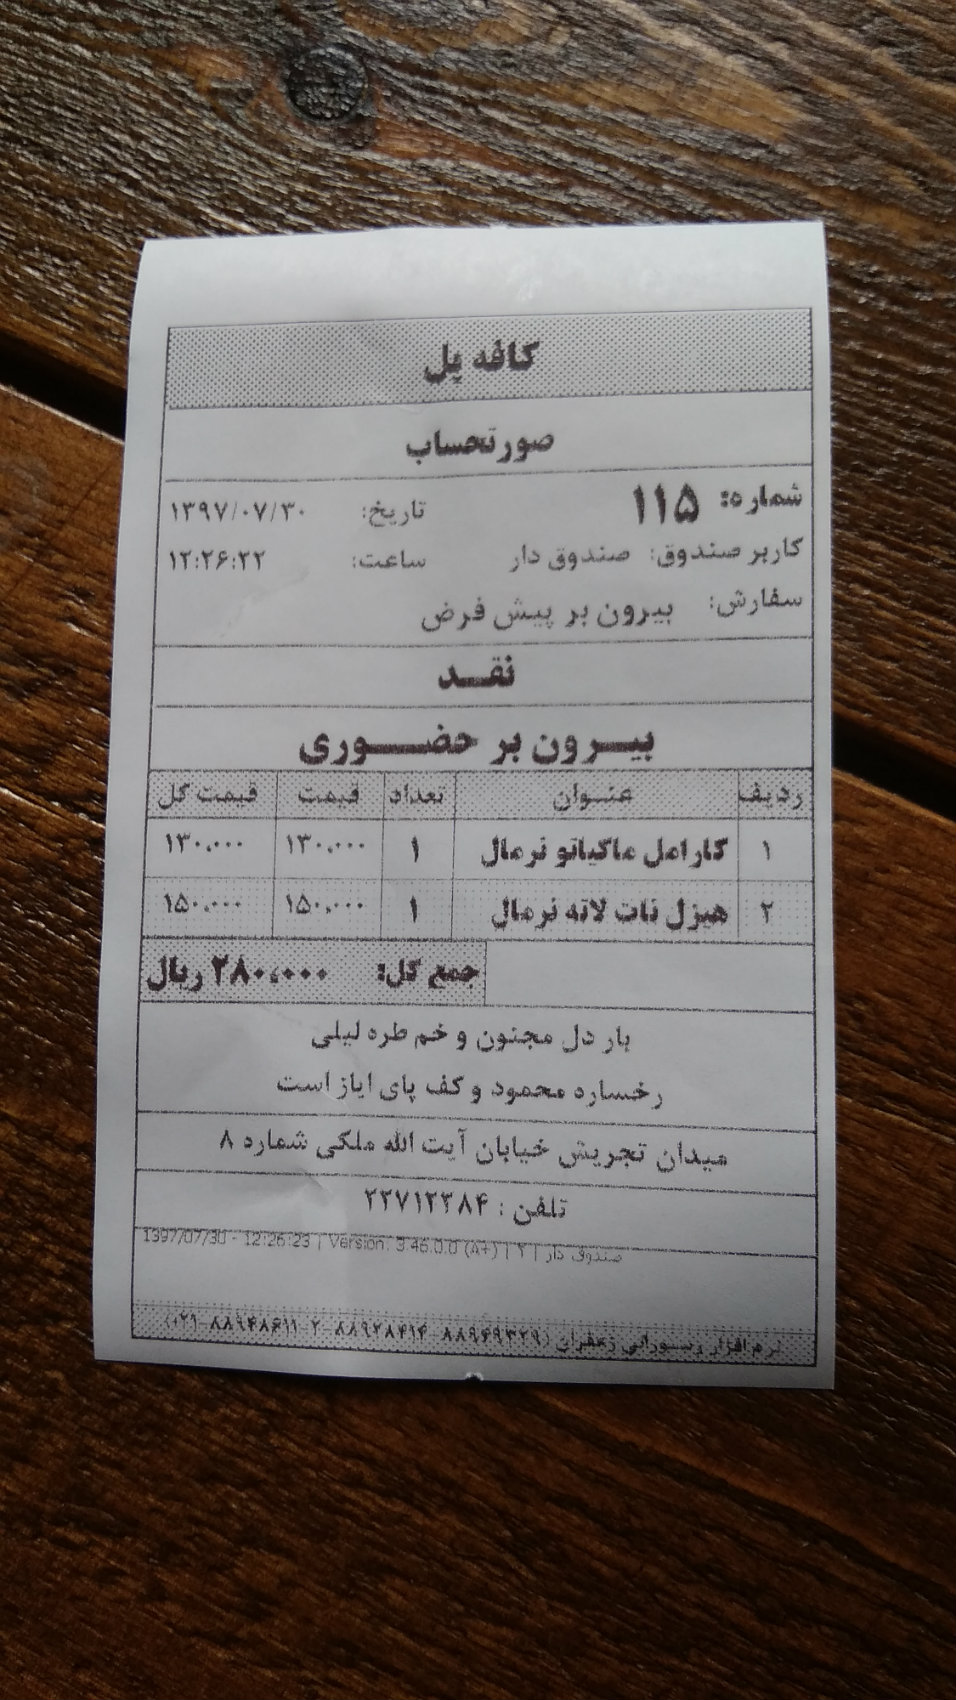 کافه پل
صورتحساب
شماره: ۱۱۵ تاریخ: ۱۳۹۷/۰۷/۳۰
کاربر صندوق: صندوق دار ساعت: ۱۲:۲۶:۲۲
سفارش: بیرون بر پیش فرض
نقد
بیرون بر حضوری
ردیف عنوان تعداد قیمت قیمت کل
۱ کارامل ماکیاتو نرمال ۱ ۱۳۰،۰۰۰ ۱۳۰،۰۰۰
۲ هیزل نات لاته نرمال ۱ ۱۵۰،۰۰۰ ۱۵۰،۰۰۰
جمع کل: ۲۸۰،۰۰۰ ریال
بار دل مجنون و خم طره لیلی
رخساره محمود و کف پای ایاز است
میدان تجریش خیابان آیت الله ملکی شماره ۸
تلفن : ۲۲۷۱۲۳۸۴
1397/07/30 - 12:26:23 | Version: 3.46.0.0 (A+) | ۲ | صندوق دار
نرم افزار رستورانی زعفران (۸۸۹۴۹۳۲۹ ۸۸۹۲۸۴۱۴ ۲-۸۸۹۴۸۶۱۱-۰۲۱)